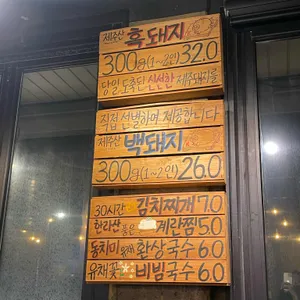 제주산 흑돼지
300g(1~2인) 32.0
당일 도축한 신선한 제주돼지를
직접 선별하여 제공합니다
제주산 백돼지
300g(1~2인) 26.0
30시간 김치찌개 7.0
한라산 품은 계란찜 5.0
동치미 환상국수 6.0
유채꽃 비빔국수 6.0